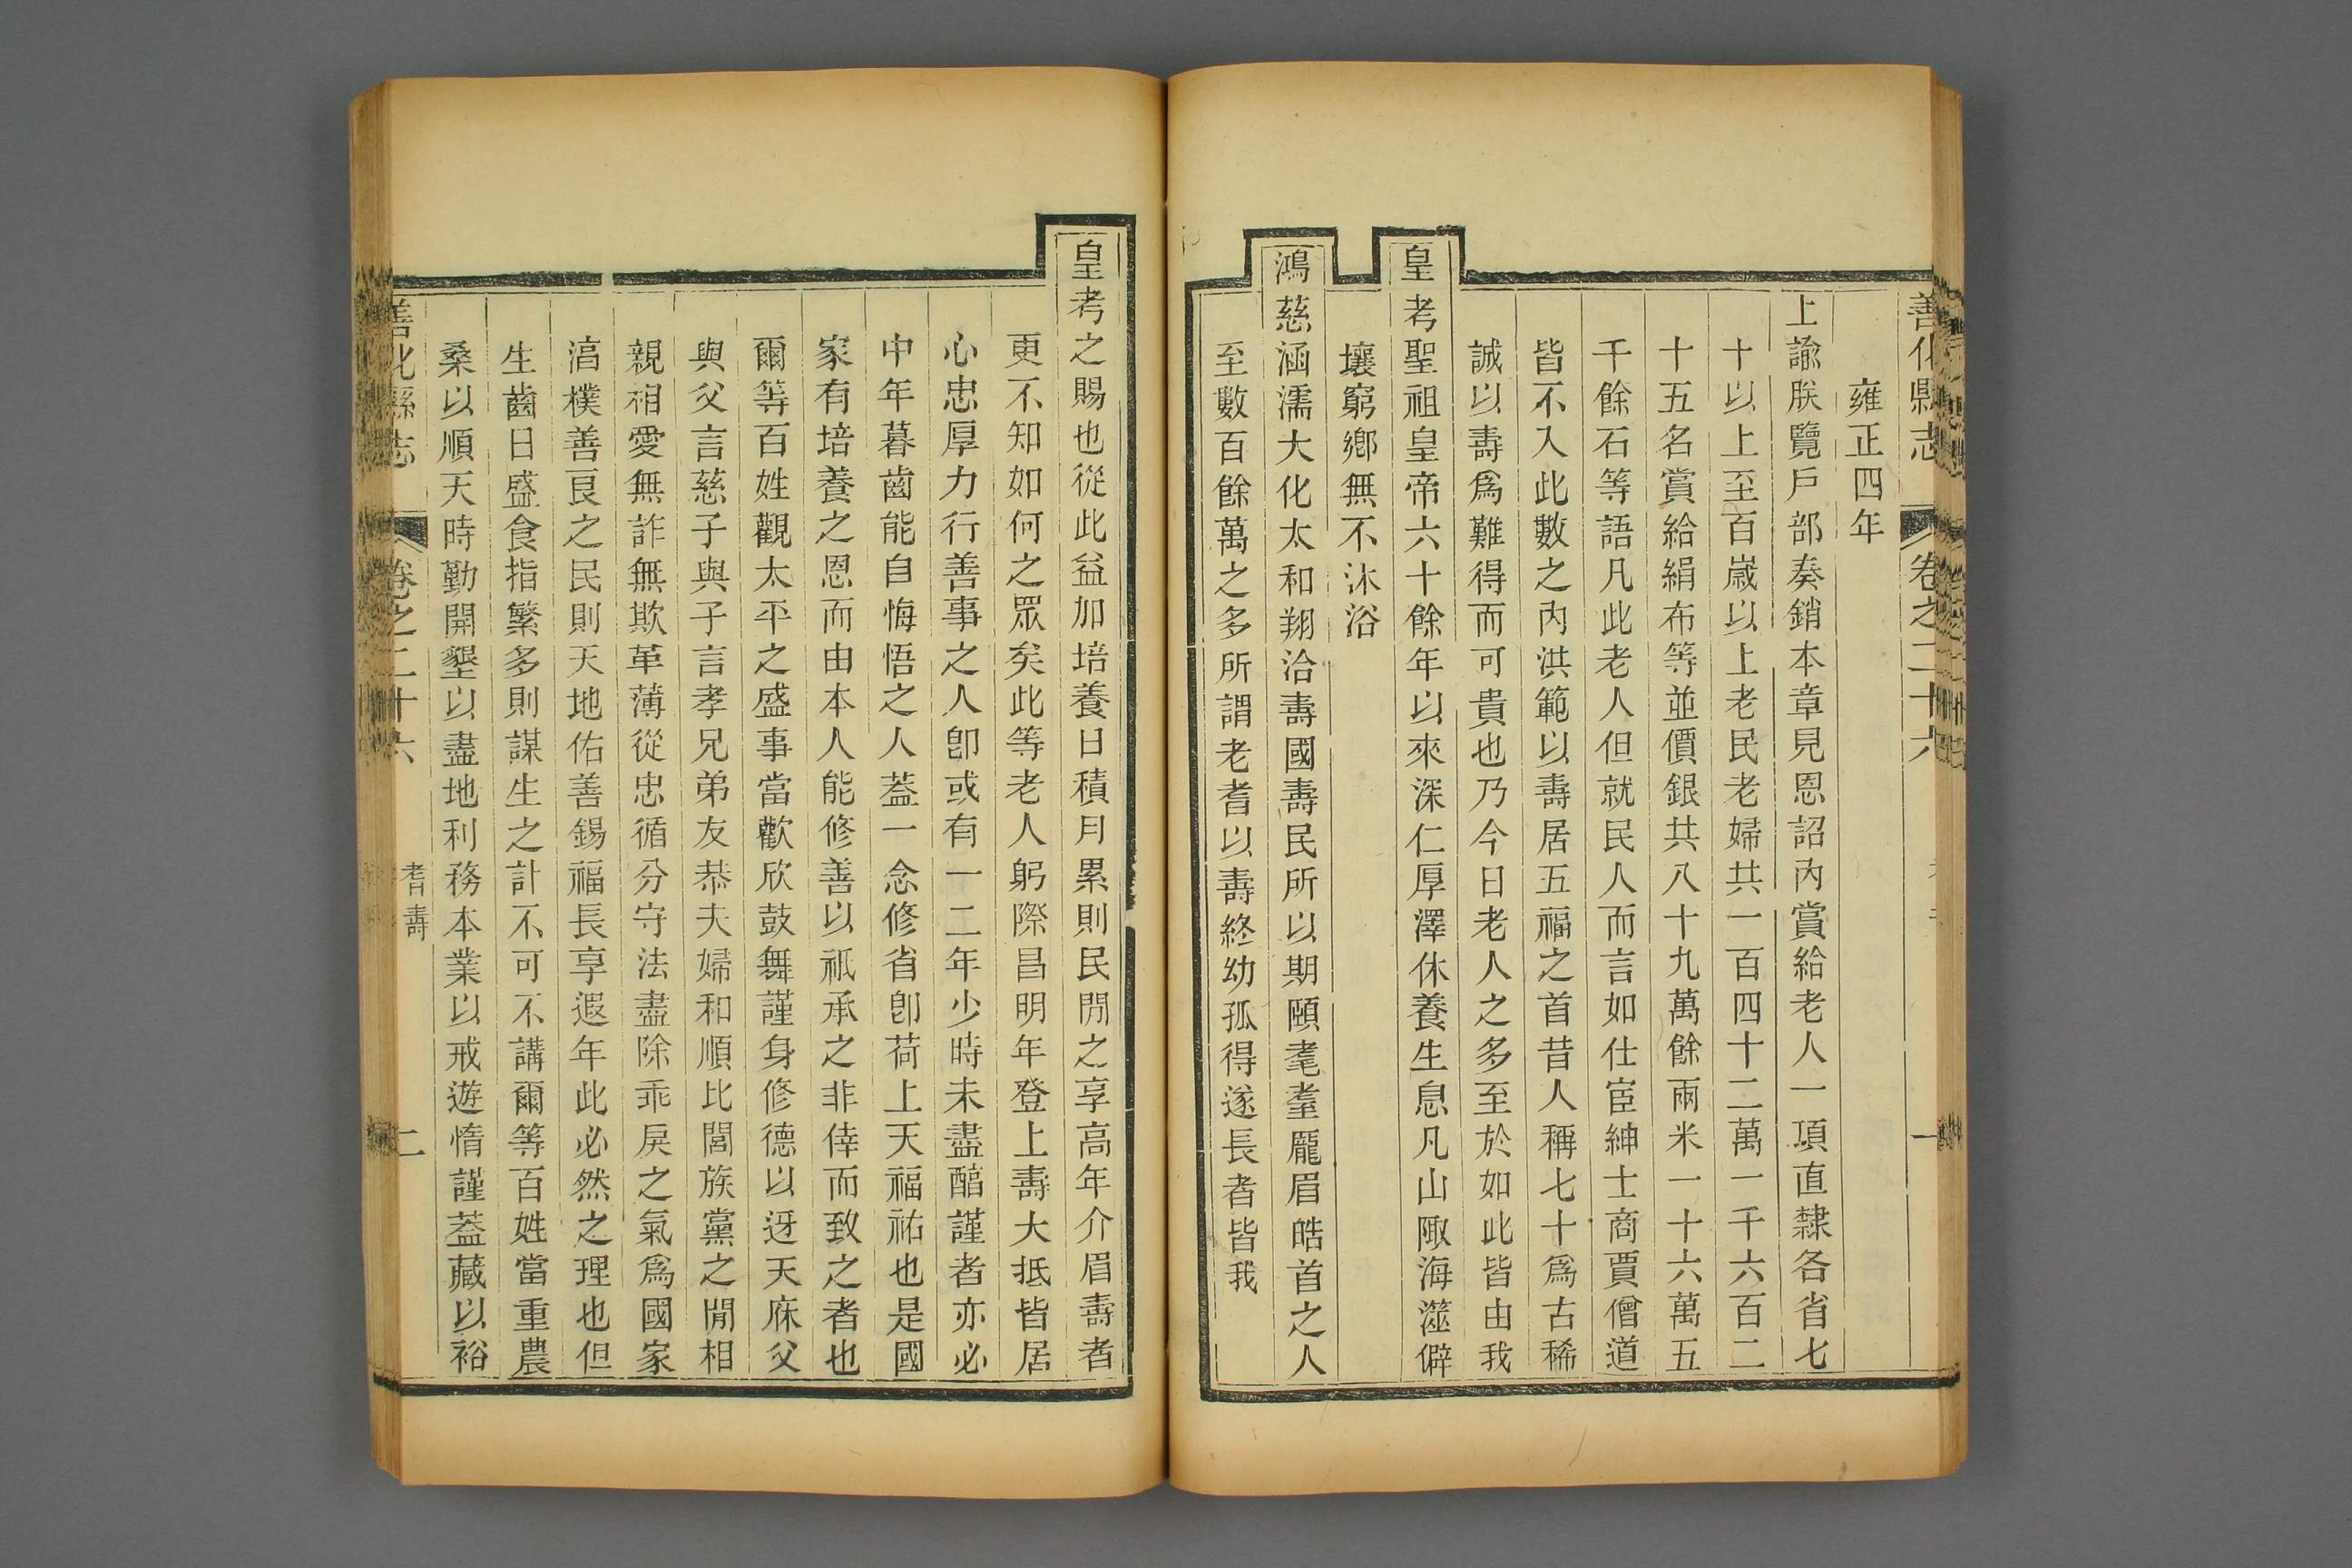 善化縣志 卷之二十六 一
雍正四年
上諭朕覽戶部奏銷本章見恩詔內賞給老人一項直隸各省七
十以上至百歲以上老民老婦共一百四十二萬一千六百二
十五名賞給絹布等並價銀共八十九萬餘兩米一十六萬五
千餘石等語凡此老人但就民人而言如仕宦紳士商賈僧道
皆不入此數之內洪範以壽居五福之首昔人稱七十爲古稀
誠以壽爲難得而可貴也乃今日老人之多至於如此皆由我
皇考聖祖皇帝六十餘年以來深仁厚澤休養生息凡山陬海澨僻
壤窮鄉無不沐浴
鴻慈涵濡大化太和翔洽壽國壽民所以期頤耄耋龎眉皓首之人
至數百餘萬之多所謂老耆以壽終幼孤得遂長者皆我
皇考之賜也從此益加培養日積月累則民閒之享高年介眉壽者
更不知如何之眾矣此等老人躬際昌明年登上壽大抵皆居
心忠厚力行善事之人卽或有一二年少時未盡醕謹者亦必
中年暮齒能自悔悟之人蓋一念修省卽荷上天福祐也是國
家有培養之恩而由本人能修善以祗承之非倖而致之者也
爾等百姓觀太平之盛事當歡欣鼓舞謹身修德以迓天庥父
與父言慈子與子言孝兄弟友恭夫婦和順比閭族黨之閒相
親相愛無詐無欺革薄從忠循分守法盡除乖戾之氣爲國家
湻樸善良之民則天地佑善錫福長享遐年此必然之理也但
生齒日盛食指繁多則謀生之計不可不講爾等百姓當重農
桑以順天時勤開墾以盡地利務本業以戒遊惰謹蓋藏以裕
善化縣志 卷之二十六 耆壽 二